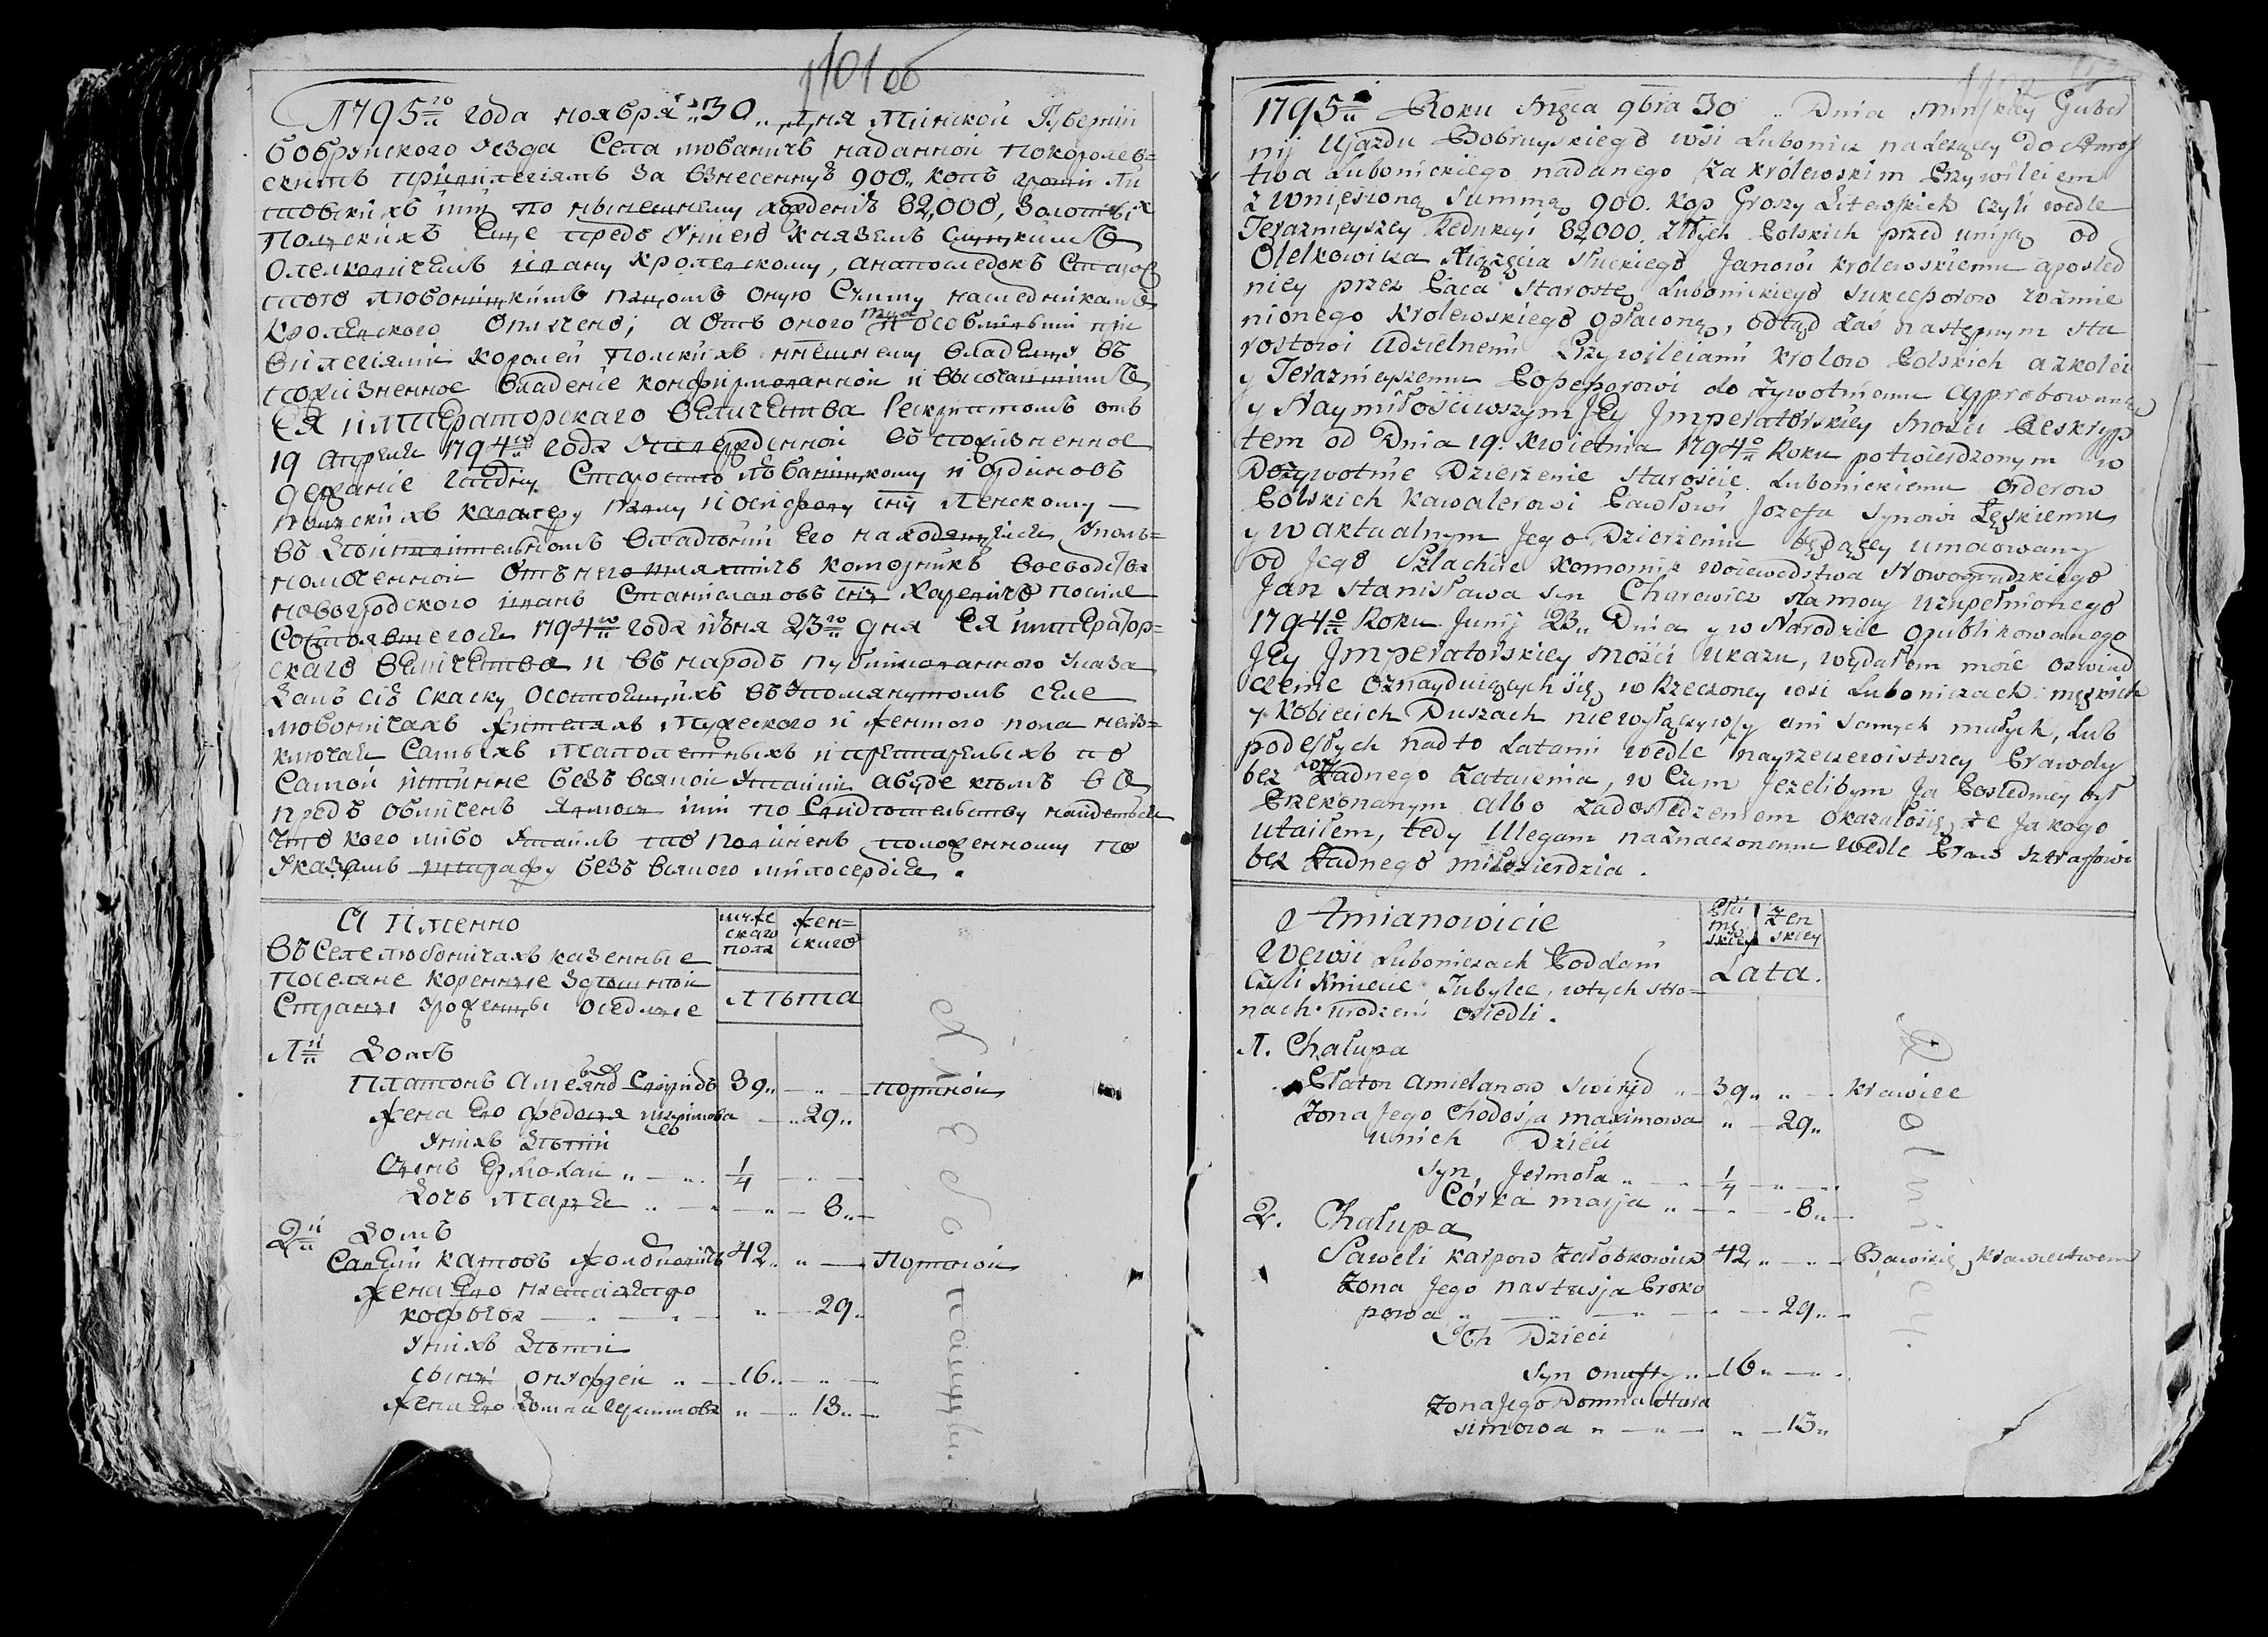 1101 об
1795го года ноября 30 дня Минской Губернии
бобруйского уезда Села любаничъ наданной по королев=
скимъ привилегiямъ за взнесенную 900 копъ грошей ли
товскихъ или по нынешнему хождению 82,000, золотыхъ
Польскихъ еще предъ Униею Княземъ Слуцкимъ
Олелковичемъ Ивану Кролевскому, а напоследокъ Старос
тою любоницкимъ Пацомъ оную Сумму наследникамъ
Кролевского оплачено; а отъ оного особливыми при
вилегiями королей Польскихъ нинешнему владельцу въ
пожизненное владенiе конфирмованной и Высочайшимъ
Ея Императорскаго Величества Рескриптомъ отъ
19 апреля 1794го года утвержденной въ пожизненное
держанiе Старосте любаницкому и ординовъ
Польскихъ кавалеру Павлу Иосифову сыну Ленскому —
въ действительномъ владении его находящейся уполъ=
номоченной отъ него шляхтичъ коморникъ воеводства
новогродского Иванъ Станиславовъ сынъ Харевичъ после
Состоявшегося 1794го года июня 23го дня Ея император=
скаго величества и въ народъ публикованного указа
далъ сию скаску о состоящихъ въ упомянутомъ селе
любоничахъ жителяхъ мужеского и женского пола не из=
ключая самыхъ малолетныхъ и престарелыхъ по
самой истинне безъ всякой утайки а буде въ чемъ
предъ обличенъ явлюся или по свидетельству найдется
что кого либо утаилъ то повиненъ положенному по
указамъ штрафу безъ всякого милосердiя.
А Именно
въ Селе любоничахъ казенные
поселяне коренные здешней
Страны урожденцы оседлые
муже
скаго
пола
жен=
скаго
лета
1й домъ
Платонъ Свиридъ 39 портной
жена его федося максимова 29
у нихъ дети
Сынъ Ермолай 1/4
дочь Марья 8
2й домъ
Савелий карповъ 42 портной
жена его настасья про
кофьева 29
у нихъ дети
сынъ онуфрей 16
жена его домна герасимова 13
1795 Roku Mśca 9bra 30 Dnia Minskiey Guber
nij Ujazdu Bobruyskiego wsi Lubonicz należącey do Staros
twa Lubonickiego nadanego za królewskim Przywileiem
z wniesioną Summą 900. kop Groszy Litewskich czyli wedle
Terazmeyszey Redukcyi 82,000. złłtych Polskich przed uniją od
Olelkowicza Xiążęcia słuckiego Janowi krolewskiemu a posled
niey przez Paca Starostę Lubonickiego Sukcessorow wzmie
nionego krolewskiego opłaconą, odtąd zaś następnym sta
rostowi udzielnemi Przywileiami krolow Polskich a z kolei
y Teraznieyszemu Possessorowi do żywotniemu approbowaney
y Naymiłościwszym Jey Jmperatorskiey mości Reskryp
tem od Dnia 19. kwietnia 1794o Roku potwierdzonym w
Dożywotnie Dzierżenie Starościc Lubonickiemu Orderow
Polskich Kawalerowi Pawłowi Jozefa synowi Łęskiemu
y w aktualnym Jego Dzierżeniu będącey umocowany
od Jego Szlachcic komornik woiewodstwa Nowogrodzkiego
Jan Stanisława syn Charewicz sła mocy uzupełnionego
1794o Roku Junij 23 Dnia y w Narodzie opublikowanego
Jey Jmperatorskiey mości ukazu, wydałem moie oswiad
czenie oznayduiących się w Rzeczoney wsi Luboniczach męzkich
y kobiecich Duszach nie wyłączywszy ani samych małych, lub
podeszłych nad to Latami wedle nayrzeczewistszey Prawdy
bez żadnego zataienia, w czym jeżelibym ja Posledniey był
Przekonanym albo zadośledzeniem okazałosię, że ja kogo
utaiłem, tedy Ulegam naznaczonemu wedle Praw sztrafowi
bez żadnego miłosierdzia.
A mianowicie
We wsi Luboniczach Poddani
czyli kmiecie Tubylce, w tych stro=
nach urodzeni osiedli.
Płci
mę
skiey
żen
skiey
Lata.
1. Chałupa
Płaton amielanow Swiryd 39 krawiec
Zona Jego Chodosja maximowa 29
u nich Dzieci
Syn Jermoła 1/4
Córka marja 8
2. Chałupa
Saweli karpow Załobkowicz 42 Bawisię krawiectwem
Zona Jego nastusja Proko
powa 29
Jch Dzieci
Syn onufry 16
Zona Jego Domna Hara
simowa 13